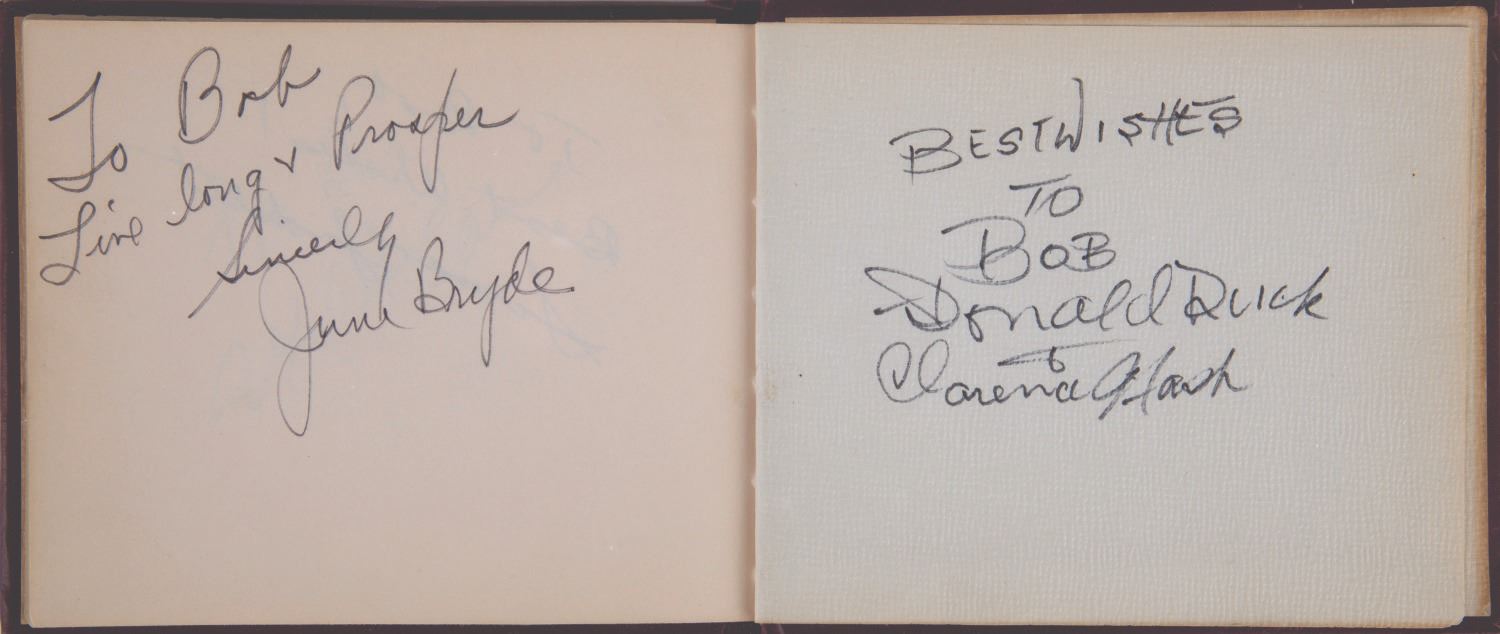 To Bob
Live long & Prosper
Sincerely
June Bryde
BEST WISHES
TO
BOB
Donald Duck
&
Clarence Nash